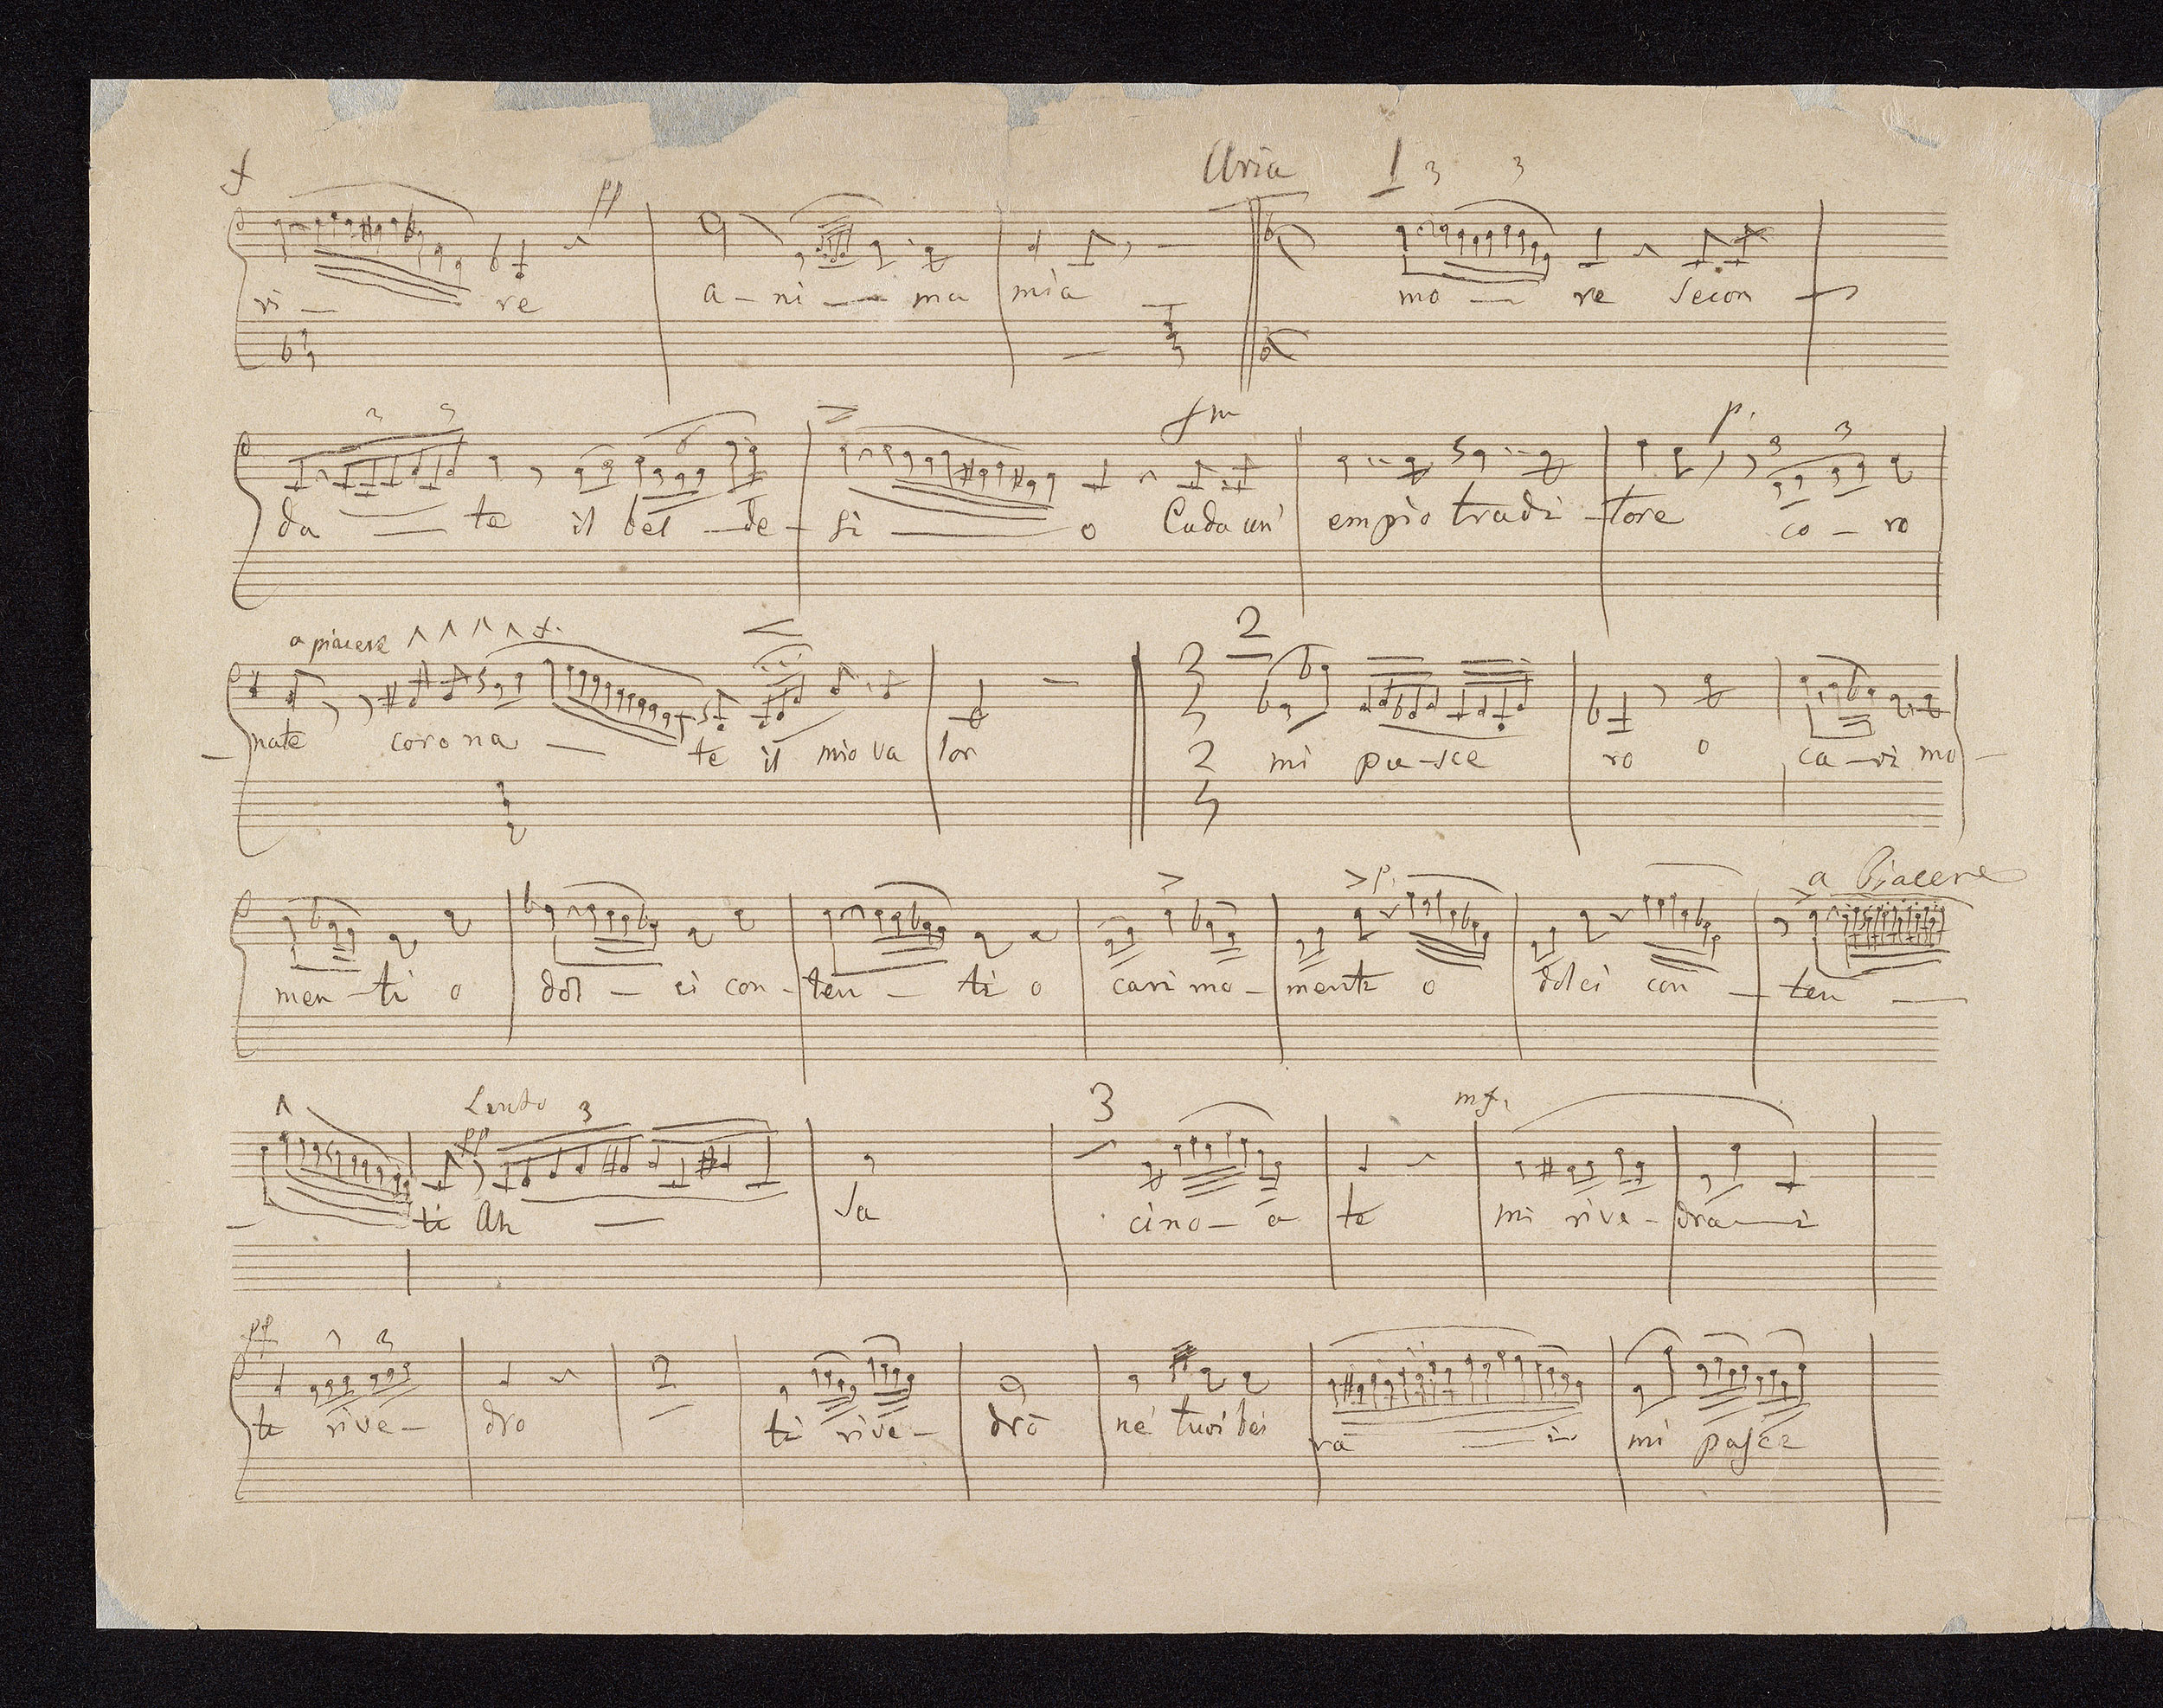 f pp Aria 1 3 3
ri — re a - ni — ma mia mo — re Secon —
3 3 > fm p. 3 3
da — te il bel — de - si — o Cada un' empio tradi - tore co - ro
a piacere ^ ^ ^ ^ f. < 2
- nate corona — te il mio va lor 3 2 mi pa-sce ro o ca-ri mo -
> > p. > a Piacere
men - ti o dol - ci con - ten - ti o cari mo - menti o dolci con — ten —
^ Lento pp 3 3 mf.
- ti Ah — Va cino - a te mi rive - dra — i
pp 3 3
te rive - dro ti rive - drò ne' tuoi bei ra — i mi pasce